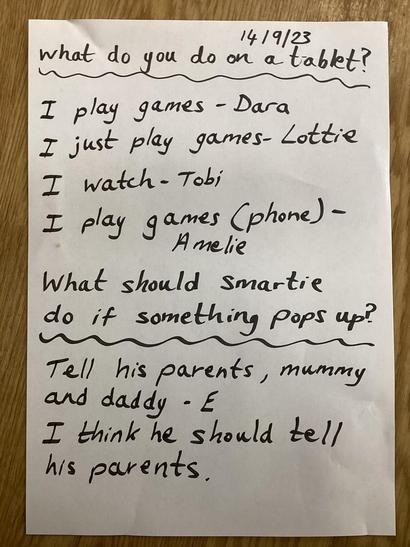 14/9/23
what do you do on a tablet?
I play games - Dara
I just play games- Lottie
I watch - Tobi
I play games (phone) -
Amelie
What should smartie
do if something pops up?
Tell his parents, mummy
and daddy - E
I think he should tell
his parents.